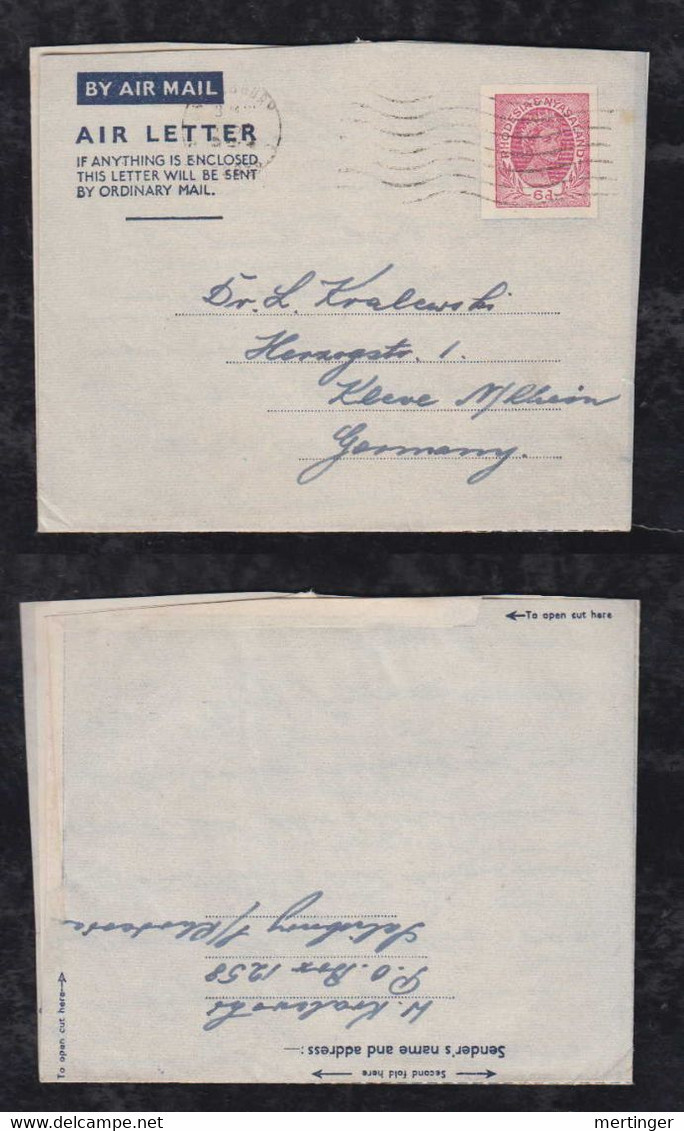 BY AIR MAIL
AIR LETTER
IF ANYTHING IS ENCLOSED,
THIS LETTER WILL BE SENT
BY ORDINARY MAIL.
RHODESIA & NYASALAND
6d
Dr. L. Kralewski
Herzogstr. 1.
Kleve N/Rhein
Germany.
←To open cut here
To open cut here→
← Second fold here →
Sender's name and address:—
W. Kralewski
P.O. Box 1258
Salisbury S/Rhodesia
www.delcampe.net
mertinger